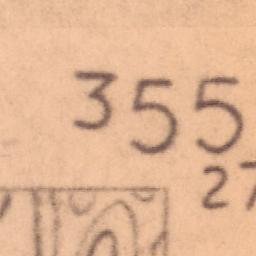 355
27